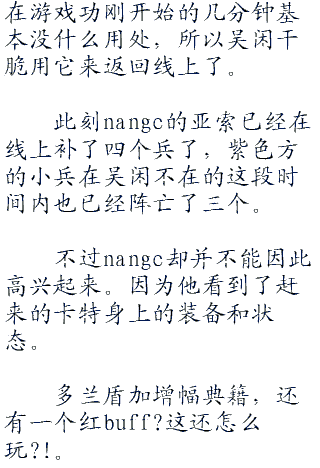 在游戏功刚开始的几分钟基
本没什么用处，所以吴闲干
脆用它来返回线上了。
此刻nangc的亚索已经在
线上补了四个兵了，紫色方
的小兵在吴闲不在的这段时
间内也已经阵亡了三个。
不过nangc却并不能因此
高兴起来。因为他看到了赶
来的卡特身上的装备和状
态。
多兰盾加增幅典籍，还
有一个红buff?这还怎么
玩?!。